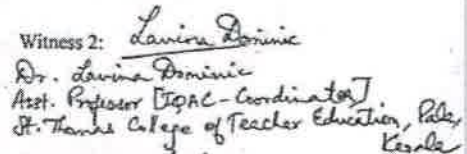 Witness 2: Lavina Dominic
Dr. Lavina Dominic
Asst. Professor [IQAC - Coordinator]
St. Thomas College of Teacher Education, Pala,
Kerala